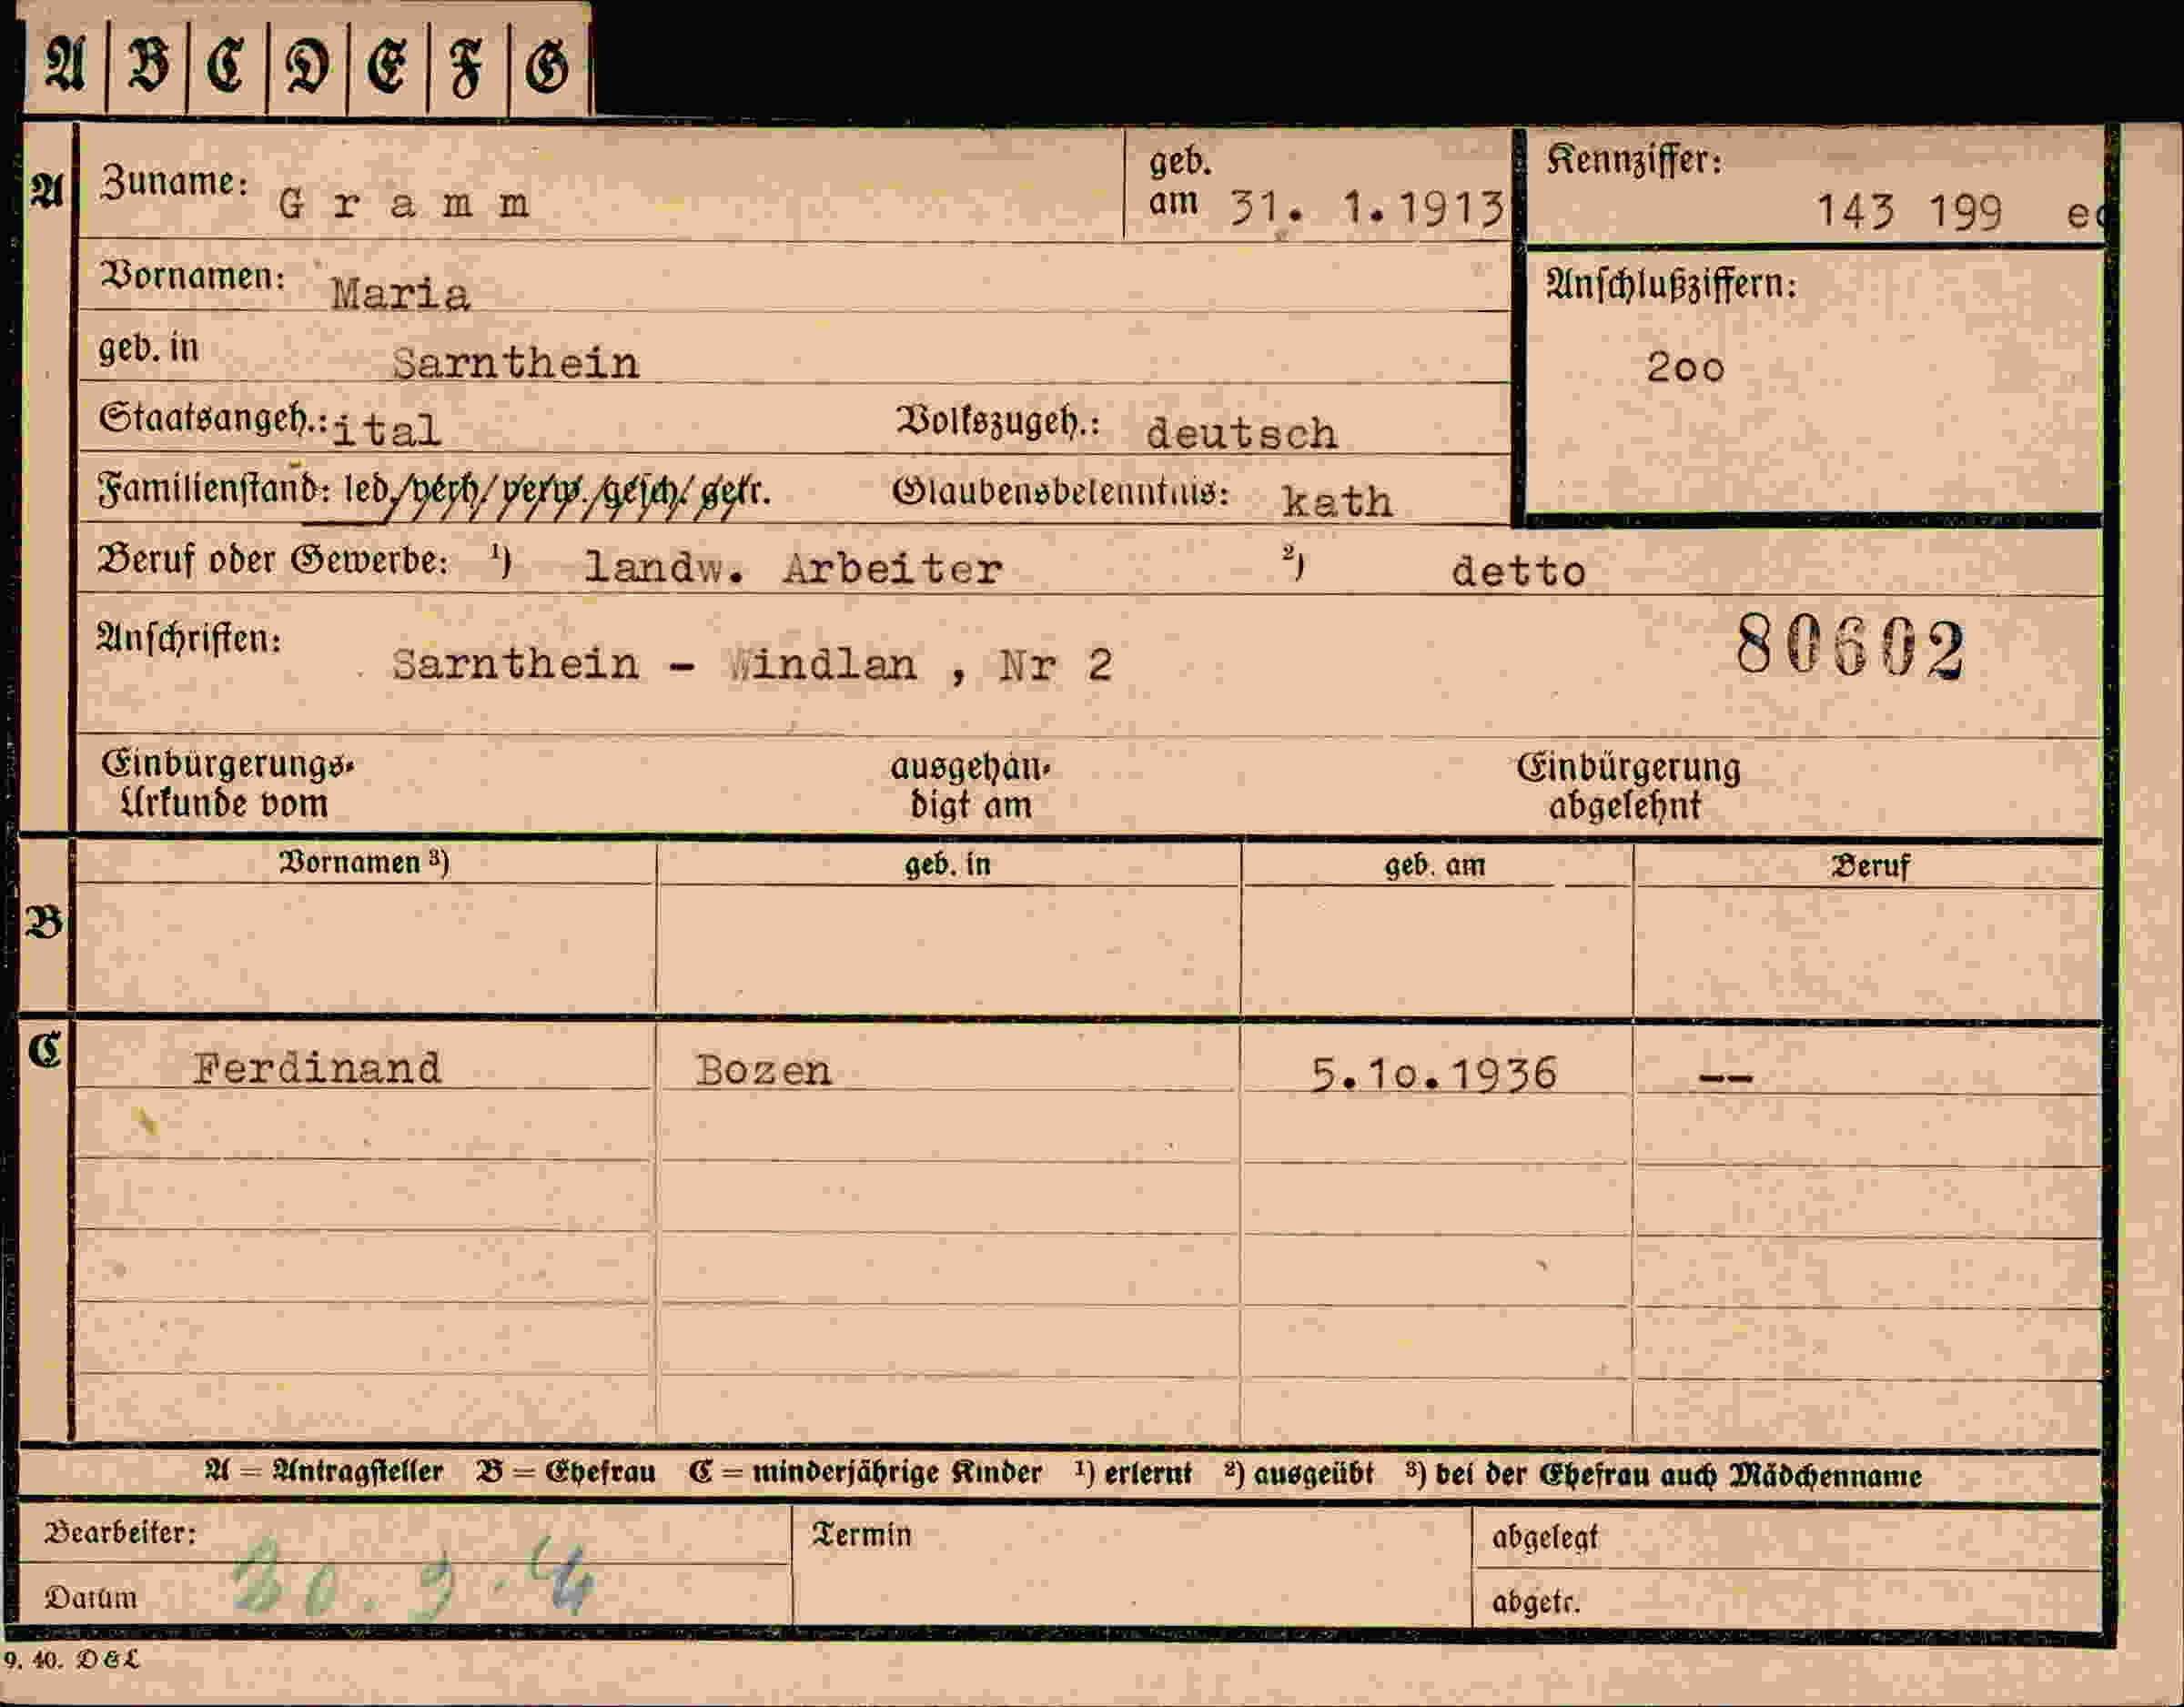 A B C D E F G
A
Zuname: Gramm
geb. am 31. 1.1913
Kennziffer: 143 199
Vornamen: Maria
Anschlußziffern:
200
geb. in Sarnthein
Staatsangeh.: ital Volkszugeh.: deutsch
Familienstand: led./verh/verw./gesch/getr. Glaubensbekenntnis: kath
Beruf oder Gewerbe: ¹) landw. Arbeiter ²) detto
Anschriften: Sarnthein - Windlan , Nr 2
80602
Einbürgerungs-
Urkunde vom
ausgehän-
digt am
Einbürgerung
abgelehnt
B
Vornamen ³) geb. in geb. am Beruf
C
Ferdinand Bozen 5.10.1936 --
A = Antragsteller B = Ehefrau C = minderjährige Kinder ¹) erlernt ²) ausgeübt ³) bei der Ehefrau auch Mädchenname
Bearbeiter:
Termin
abgelegt
Datum
abgetr.
9. 40. D&L